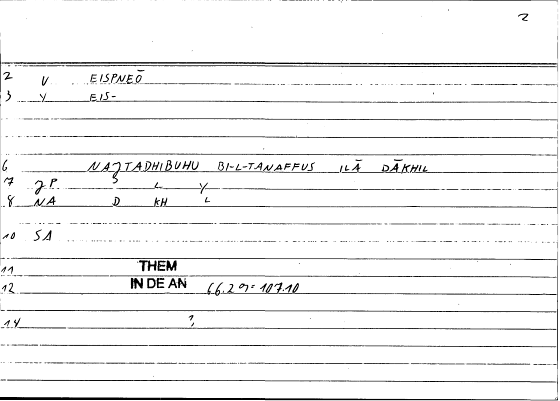 2
2 V EISPNEŌ
3 Y EIS-
6 NAJTADHIBUHU BI-L-TANAFFUS ILĀ DĀKHIL
7 JP 3 L Y
8 NA D KH L
10 SA
11 THEM
12 IN DE AN 66.29 = 107.10
14